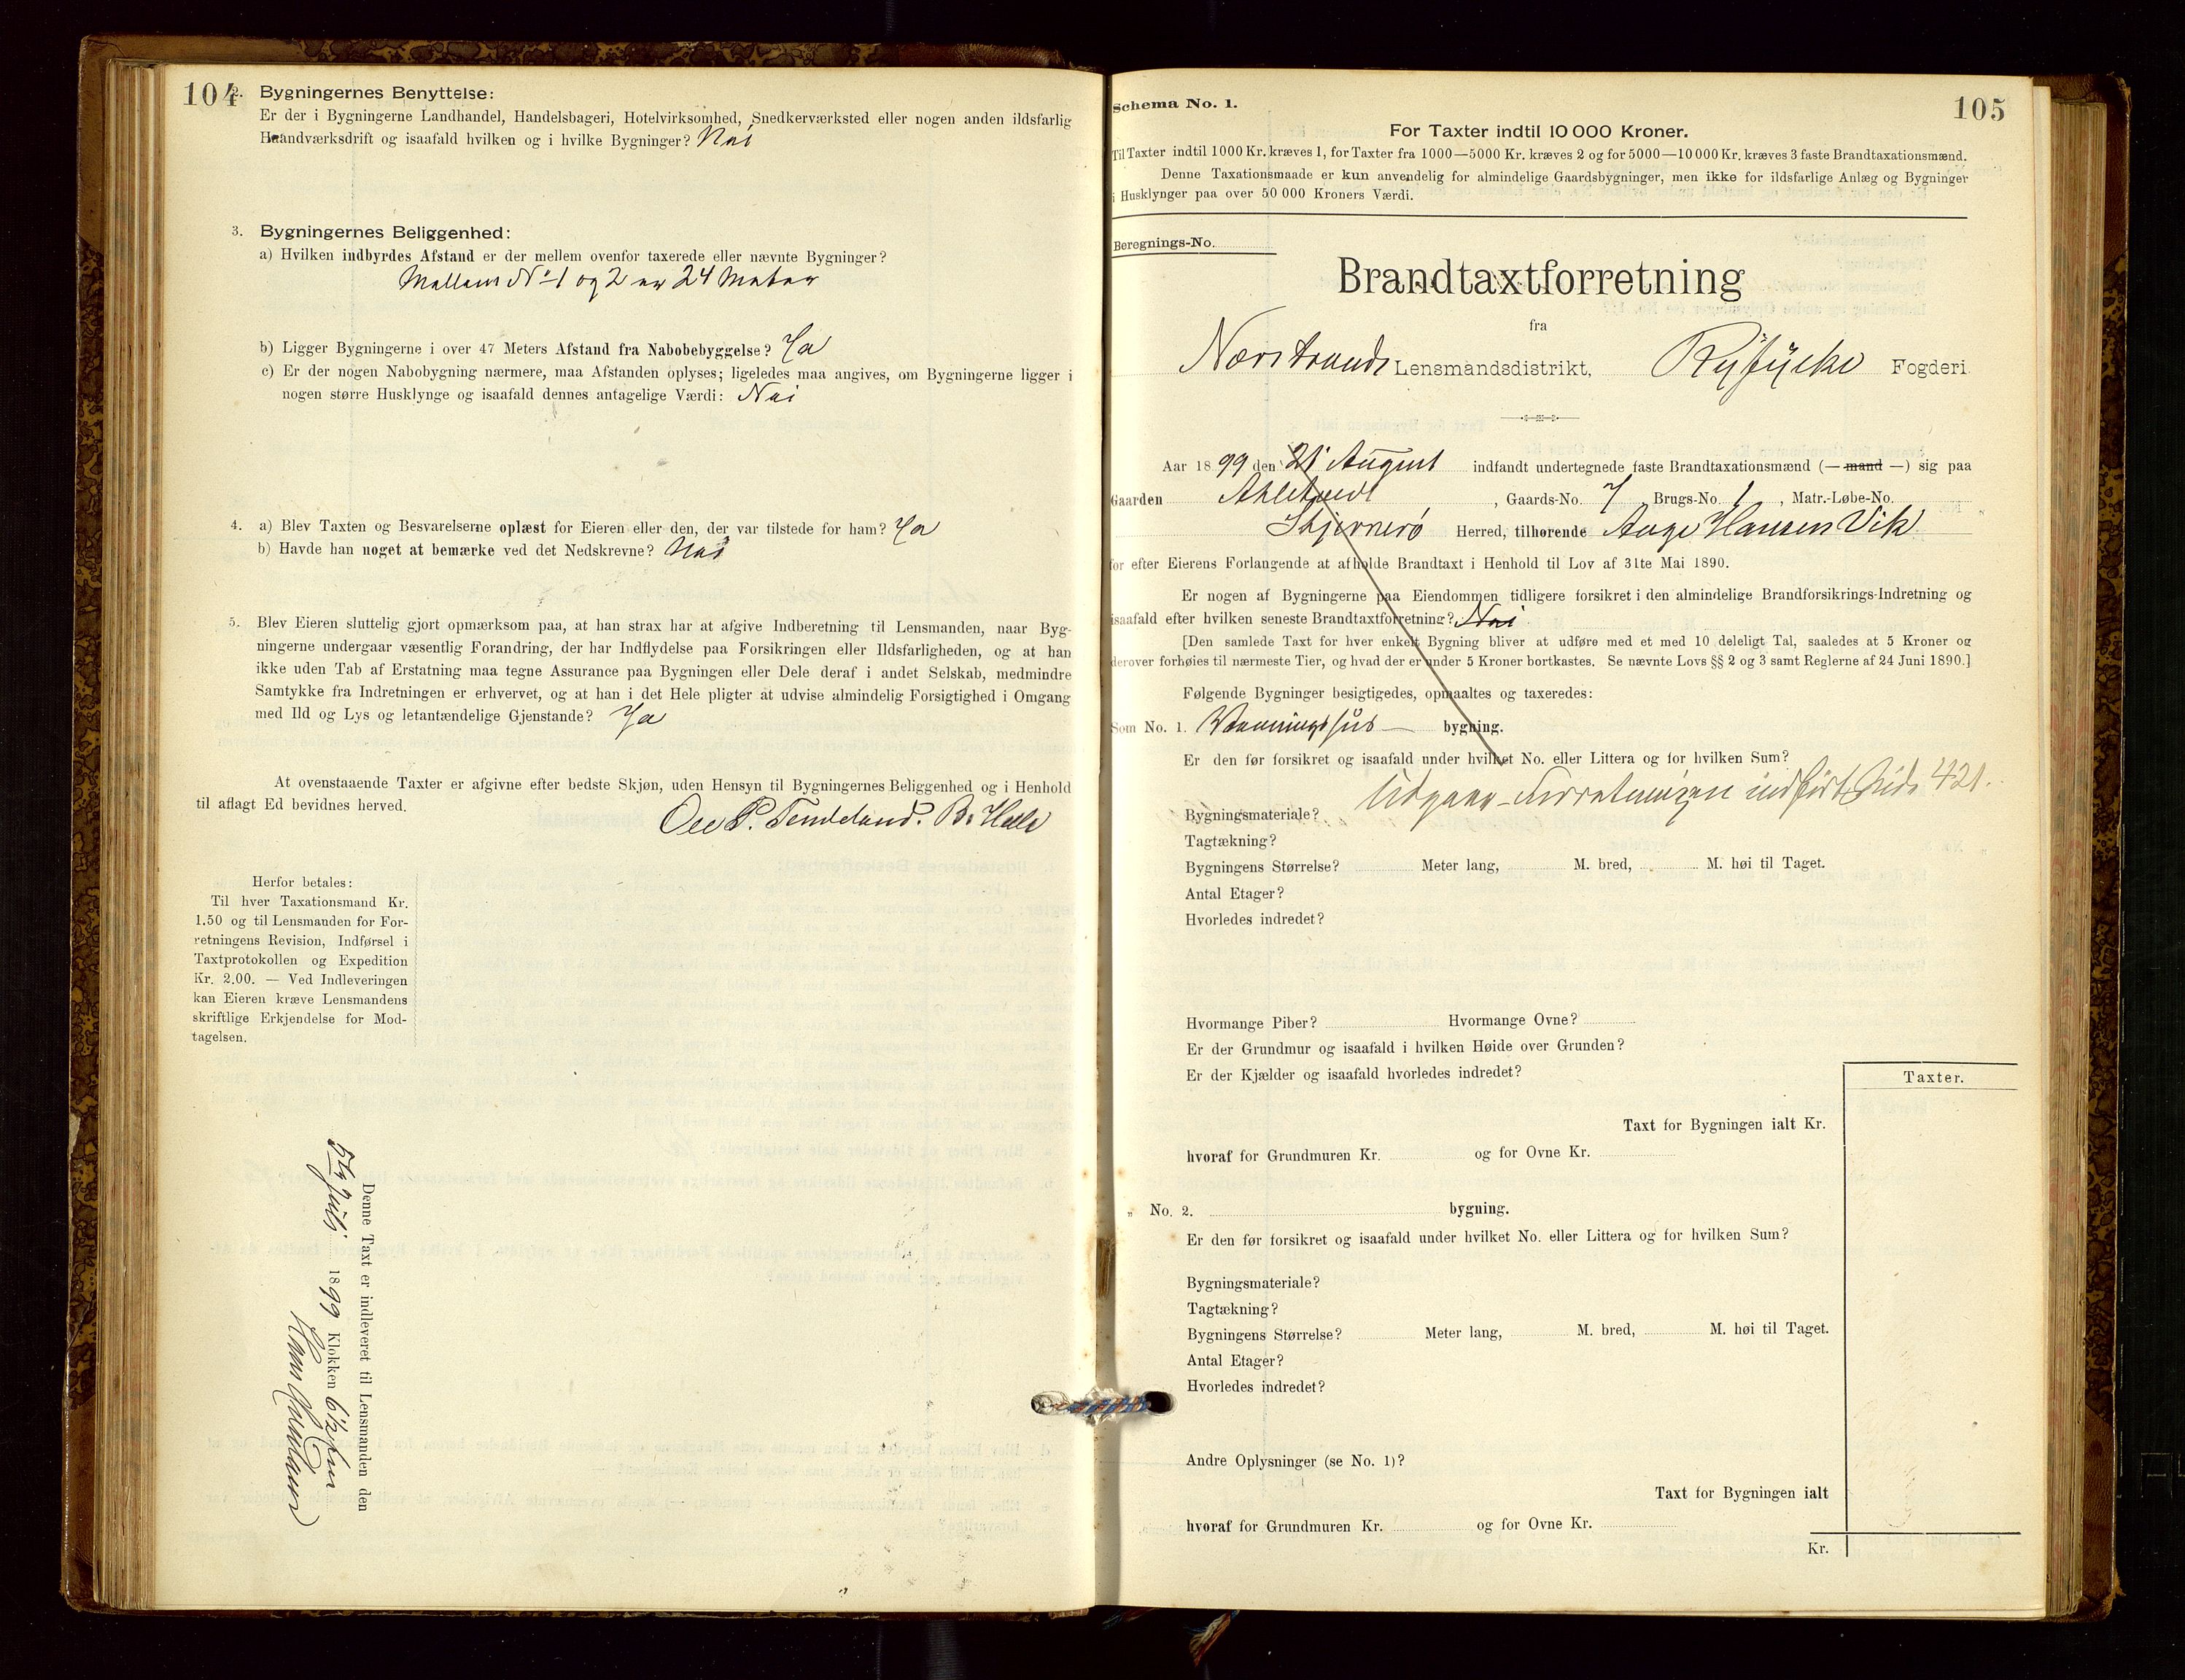 104
2. Bygningernes Benyttelse:
Er der i Bygningerne Landhandel, Handelsbageri, Hotelvirksomhed, Snedkerværksted eller nogen anden ildsfarlig
Haandværksdrift og isaafald hvilken og i hvilke Bygninger? Nei
3. Bygningernes Beliggenhed:
a) Hvilken indbyrdes Afstand er der mellem ovenfor taxerede eller nævnte Bygninger?
Mellem No 1 og 2 er 24 Meter
b) Ligger Bygningerne i over 47 Meters Afstand fra Nabobebyggelse? Ja
c) Er der nogen Nabobygning nærmere, maa Afstanden oplyses; ligeledes maa angives, om Bygningerne ligger i
nogen større Husklynge og isaafald dennes antagelige Værdi: Nei
4. a) Blev Taxten og Besvarelserne oplæst for Eieren eller den, der var tilstede for ham? Ja
b) Havde han noget at bemærke ved det Nedskrevne? Nei
5. Blev Eieren sluttelig gjort opmærksom paa, at han strax har at afgive Indberetning til Lensmanden, naar Byg-
ningerne undergaar væsentlig Forandring, der har Indflydelse paa Forsikringen eller Ildsfarligheden, og at han
ikke uden Tab af Erstatning maa tegne Assurance paa Bygningen eller Dele deraf i andet Selskab, medmindre
Samtykke fra Indretningen er erhvervet, og at han i det Hele pligter at udvise almindelig Forsigtighed i Omgang
med Ild og Lys og letantændelige Gjenstande? Ja
At ovenstaaende Taxter er afgivne efter bedste Skjøn, uden Hensyn til Bygningernes Beliggenhed og i Henhold
til aflagt Ed bevidnes herved.
Ole P. Tendeland. B. Helle
Herfor betales:
Til hver Taxationsmand Kr.
1.50 og til Lensmanden for For-
retningens Revision, Indførsel i
Taxtprotokollen og Expedition
Kr. 2.00. — Ved Indleveringen
kan Eieren kræve Lensmandens
skriftlige Erkjendelse for Mod-
tagelsen.
Denne Taxt er indleveret til Lensmanden den
5te Juli 1899 Klokken 6 1/2
105
Schema No. 1.
For Taxter indtil 10 000 Kroner.
Til Taxter indtil 1000 Kr. kræves 1, for Taxter fra 1000—5000 Kr. kræves 2 og for 5000—10 000 Kr. kræves 3 faste Brandtaxationsmænd.
Denne Taxationsmaade er kun anvendelig for almindelige Gaardsbygninger, men ikke for ildsfarlige Anlæg og Bygninger
i Husklynger paa over 50 000 Kroners Værdi.
Beregnings-No.
Brandtaxtforretning
fra
Nærstrands Lensmandsdistrikt, Ryfylke Fogderi.
Aar 1899 den 21 August indfandt undertegnede faste Brandtaxationsmænd (— mand —) sig paa
Gaarden , Gaards-No. 7, Brugs-No. 1, Matr.-Løbe-No.
Skjernerø Herred, tilhørende Aage Hansen Vik
for efter Eierens Forlangende at afholde Brandtaxt i Henhold til Lov af 31te Mai 1890.
Er nogen af Bygningerne paa Eiendommen tidligere forsikret i den almindelige Brandforsikrings-Indretning og
isaafald efter hvilken seneste Brandtaxtforretning? Nei
[Den samlede Taxt for hver enkelt Bygning bliver at udføre med et med 10 deleligt Tal, saaledes at 5 Kroner og
derover forhøies til nærmeste Tier, og hvad der er under 5 Kroner bortkastes. Se nævnte Lovs §§ 2 og 3 samt Reglerne af 24 Juni 1890.]
Følgende Bygninger besigtigedes, opmaaltes og taxeredes:
Som No. 1. Vaaningshus bygning.
Er den før forsikret og isaafald under hvilket No. eller Littera og for hvilken Sum?
Udgaar Forretningen indført Side 421.
Bygningsmateriale?
Tagtækning?
Bygningens Størrelse? Meter lang, M. bred, M. høi til Taget.
Antal Etager?
Hvorledes indredet?
Hvormange Piber? Hvormange Ovne?
Er der Grundmur og isaafald i hvilken Høide over Grunden?
Er der Kjælder og isaafald hvorledes indredet?
Taxter.
Taxt for Bygningen ialt Kr.
hvoraf for Grundmuren Kr. og for Ovne Kr.
„ No. 2. bygning.
Er den før forsikret og isaafald under hvilket No. eller Littera og for hvilken Sum?
Bygningsmateriale?
Tagtækning?
Bygningens Størrelse? Meter lang, M. bred, M. høi til Taget.
Antal Etager?
Hvorledes indredet?
Andre Oplysninger (se No. 1)?
Taxt for Bygningen ialt
hvoraf for Grundmuren Kr. og for Ovne Kr.
Kr.